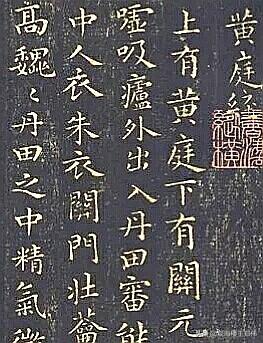 黄庭經
上有黄庭下有關元
噓吸廬外出入丹田審能
中人衣朱衣關門壯蘥
高魏〻丹田之中精氣微